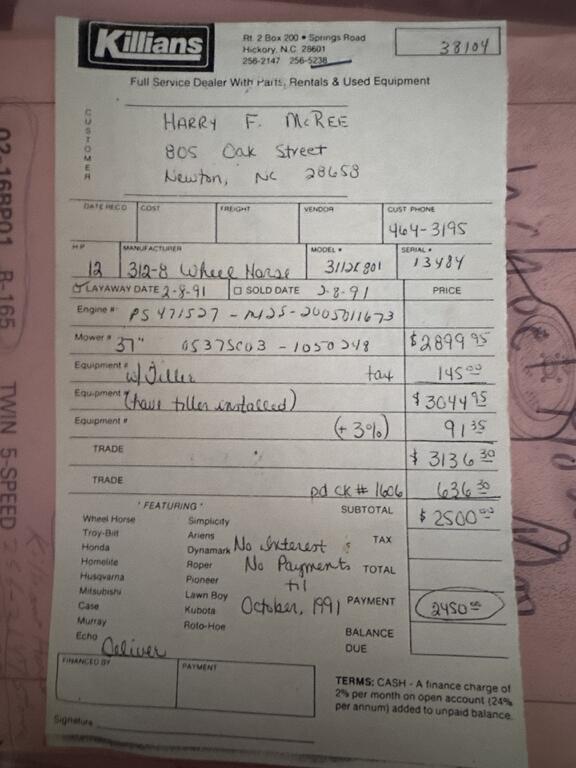 Killians
Rt. 2 Box 200 • Springs Road
Hickory, N.C. 28601
256-2147 256-5238
38104
Full Service Dealer With Parts, Rentals & Used Equipment
CUSTOMER
HARRY F. McREE
805 Oak Street
Newton, NC 28658
DATE RECD COST FREIGHT VENDOR CUST PHONE
464-3195
HP MANUFACTURER MODEL # SERIAL #
12 312-8 Wheel Horse 3112K801 13484
LAYAWAY DATE 2-8-91 SOLD DATE 2-8-91 PRICE
Engine # PS 471527 - M25 - 2005011673
Mower # 37" 05375C03 - 1050248 $2899 95
Equipment # w/ Tiller tax 145 00
Equipment # (have tiller installed) $3044 95
Equipment # (+ 3%) 91 35
TRADE $ 3136 30
TRADE pd ck # 1606 636 30
"FEATURING" SUBTOTAL $ 2500 00
Wheel Horse Simplicity
Troy-Bilt Ariens TAX
Honda Dynamark No Interest &
Homelite Roper No Payments TOTAL
Husqvarna Pioneer til
Mitsubishi Lawn Boy
Case Kubota October, 1991 PAYMENT 2450 00
Murray Roto-Hoe
Echo BALANCE DUE
Deliver
FINANCED BY PAYMENT
TERMS: CASH - A finance charge of
2% per month on open account (24%
per annum) added to unpaid balance.
Signature
02-16BP01 R-165 TWIN 5-SPEED